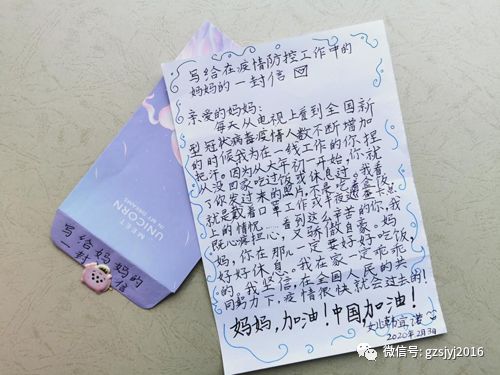 写给在疫情防控工作中的
妈妈的一封信
亲爱的妈妈:
每天从电视上看到全国新
型冠状病毒疫情人数不断增加
的时候我为在一线工作的你捏
把汗。因为从大年初一开始,你就
从没回家吃过饭或休息过。我看
了你发过来的照片,不是吃着盒饭
就是戴着口罩工作或半夜巡查卡点
上的情忧……看到这么辛苦的你,我
既心疼担心,又骄傲自豪。妈
妈,你在那儿一定要好好吃饭,
好好休息。我在家一定乖乖
的。我坚信,在全国人民的共
同努力下,疫情很快就会过去的!
妈妈,加油!中国,加油!
女儿韩宜
2020年2月3日
MEET
UNICORN
IN MY DREAMS
写给妈妈的
一封信
微信号: gzsjyj2016